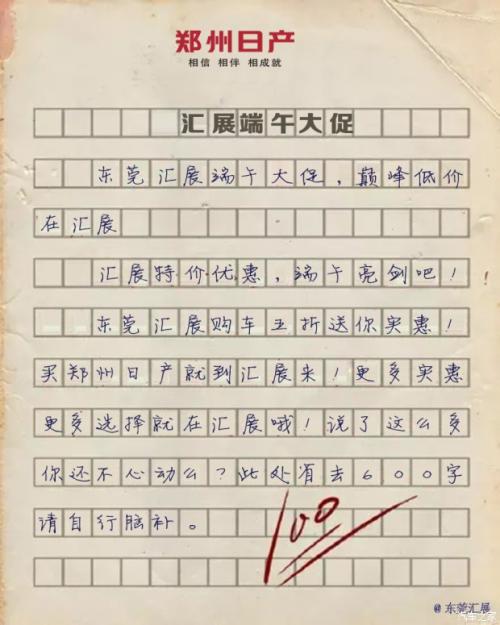 郑州日产
相信 相伴 相成就
汇展端午大促
东莞汇展端午大促，巅峰低价
在汇展
汇展特价优惠，端午亮剑吧！
东莞汇展购车五折送你实惠！
买郑州日产就到汇展来！更多实惠
更多选择就在汇展哦！说了这么多
你还不心动么？此处省去600字
请自行脑补。
100
@东莞汇展
汽车之家